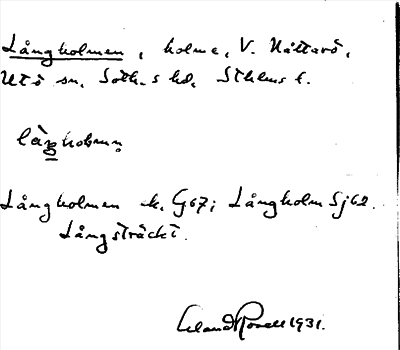 Långholmen, holme, V. Håttarö,
Utö sn, Soth.s hd, Sthlms l.
lå̀ŋholmən
Långholmen k. G67; Långholm Sj62.
Långsträckt.
Erland Rosell 1931.